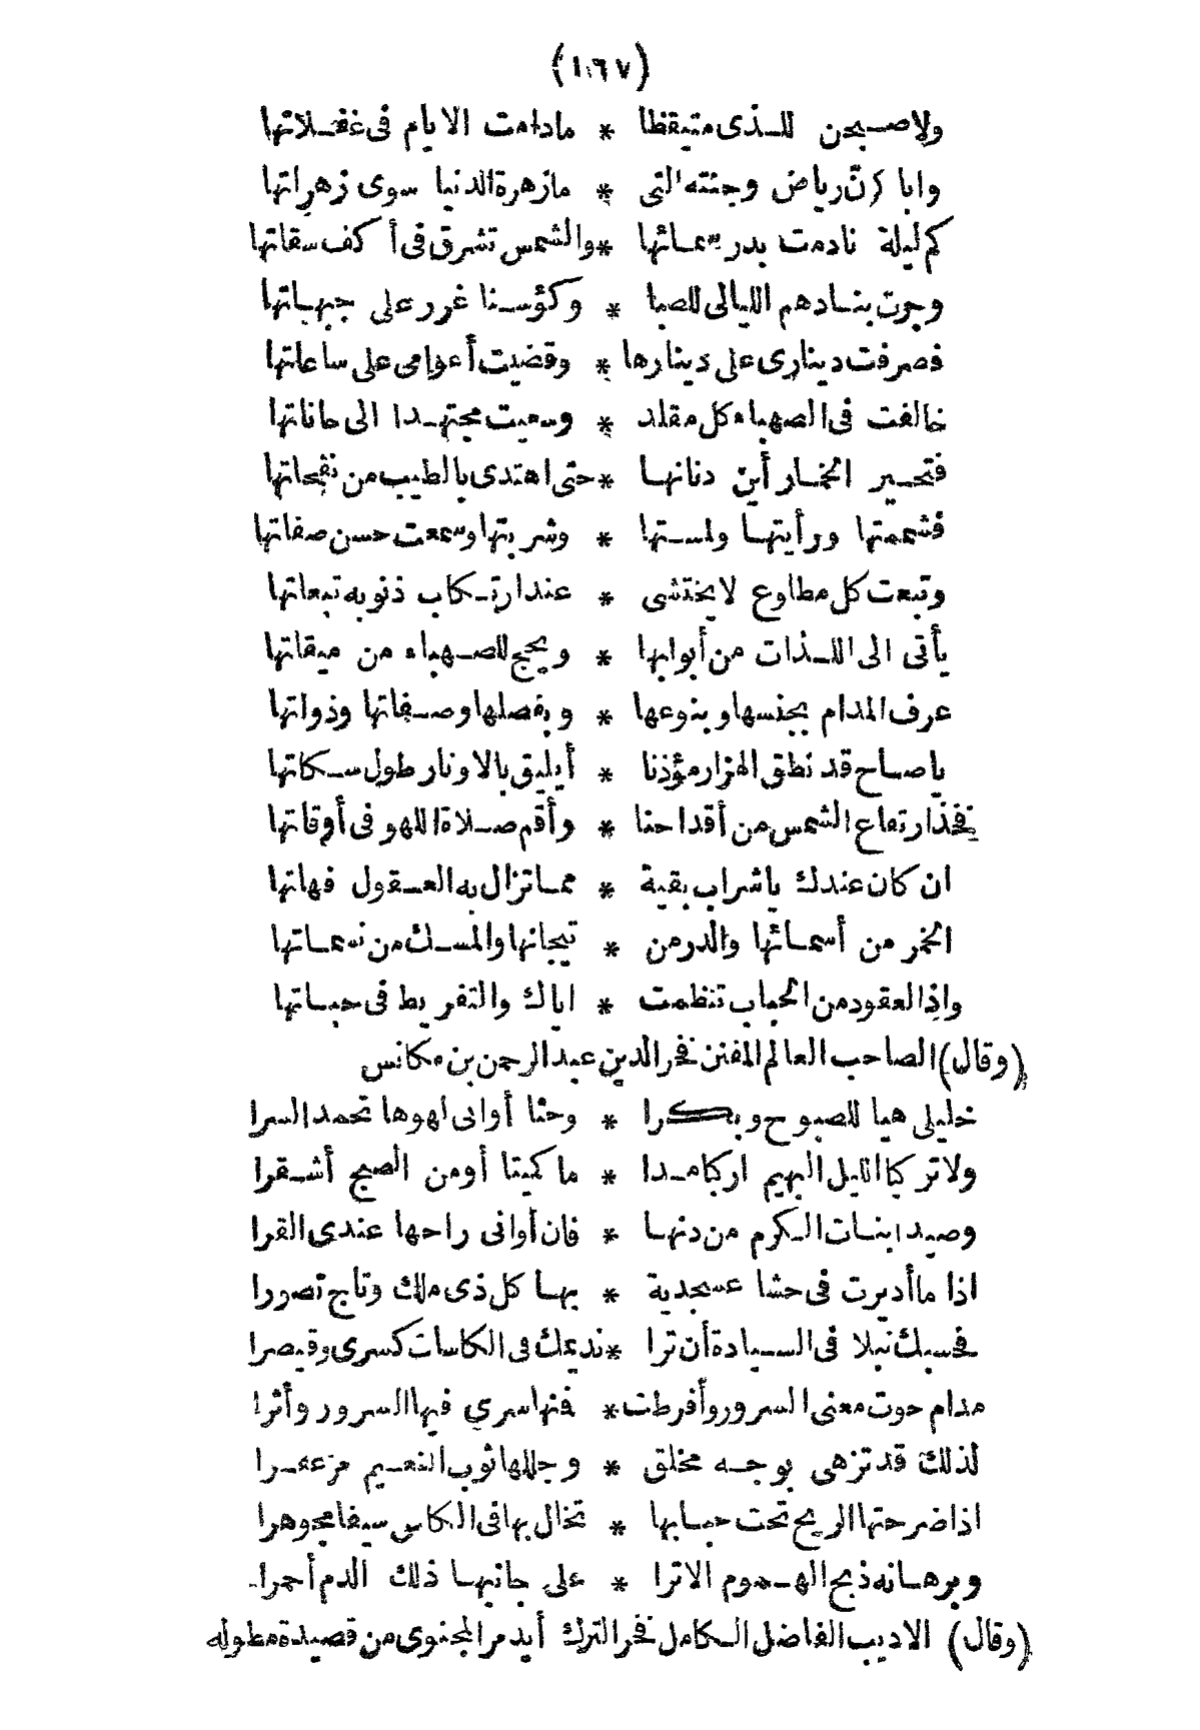 (١٦٧)
ولاصبحن للذى متيقظا * مادامت الايام فى غفلاتها
واباكرن رياض وجنته التى * مازهرة الدنيا سوى زهراتها
كم ليلة نادمت بدر سمائها * والشمس تشرق فى أكف سقاتها
وجرت بنادهم الليالى للصبا * وكؤسنا غرر على جبهاتها
فصرفت دينارى على دينارها * وقضيت أعوامى على ساعاتها
خالفت فى الصهباء كل مقلد * وسعيت مجتهدا الى حاناتها
فتحير الخمار أين دنانها * حتى اهتدى بالطيب من نفحاتها
فشممتها ورأيتها ولمستها * وشربتها وسمعت حسن صفاتها
وتبعت كل مطاوع لا يختشى * عند ارتكاب ذنوبه تبعاتها
يأتى الى اللذات من أبوابها * ويحج للصهباء من ميقاتها
عرف المدام بجنسها وبنوعها * وبفصلها وصفاتها وذواتها
ياصاح قد نطق الهزار مؤذنا * أيليق بالاوتار طول سكاتها
فخذ ارتفاع الشمس من أقداحنا * وأقم صلاة اللهو فى أوقاتها
ان كان عندك ياشراب بقية * مما تزال به العقول فهاتها
الخمر من أسمائها والدر من * تيجانها والمسك من نسماتها
واذا العقود من الحباب تنظمت * اياك والتفريط فى حباتها
(وقال) الصاحب العالم المفنن فخر الدين عبد الرحمن بن مكانس
خليلى هيا للصبوح وبكرا * وحثا أوانى لهوها تحمد السرا
ولا تركبا الليل البهيم اركبا مدا * ما كميتا أو من الصبح أشقرا
وصيدا بنات الكرم من دنها * فان أوانى راحها عندى القرا
اذا ما أديرت فى حشا عسجدية * بها كل ذى ملك وتاج تصورا
فحسبك نبلا فى السيادة أن ترا * نديمك فى الكاسات كسرى وقيصرا
مدام حوت معنى السرور وأفرطت * فنها سري فيها السرور وأثرا
لذلك قد تزهى بوجه مخلق * وجللها ثوب النعيم مزعفرا
اذا ضرحتها الريح تحت حبابها * تخال بها فى الكاس سيفا مجوهرا
وبرهانه ذبح الهموم الا ترا * على جانبها ذلك الدم أحمرا
(وقال) الاديب الفاضل الكامل فخر الترك أيدمر المحنوى من قصيدة مطوله